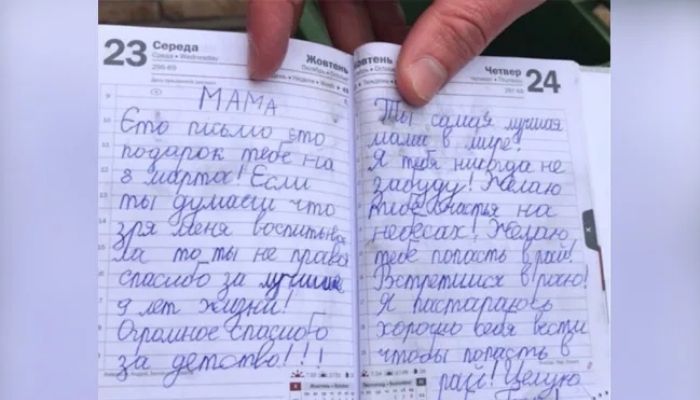 23 Середа
Среда • Wednesday
296-69
Жовтень
МАМА
Єто письмо ето
подарок тебе на
8 марта! Если
ты думаеш что
зря меня воспитыва
ла то ты не права
спасибо за лучшие
9 лет жизни!
Огромное спасибо
за детство!!!
Жовтень
Четвер 24
Ты самая лучшая
мама в мире!
Я тебя никогда не
забуду! Желаю
тебе счастья на
небесах! Желаю
тебе попасть в рай!
Встретимся в раю!
Я пастараюсь
хорошо себя вести
чтобы попасть в
рай! Целую